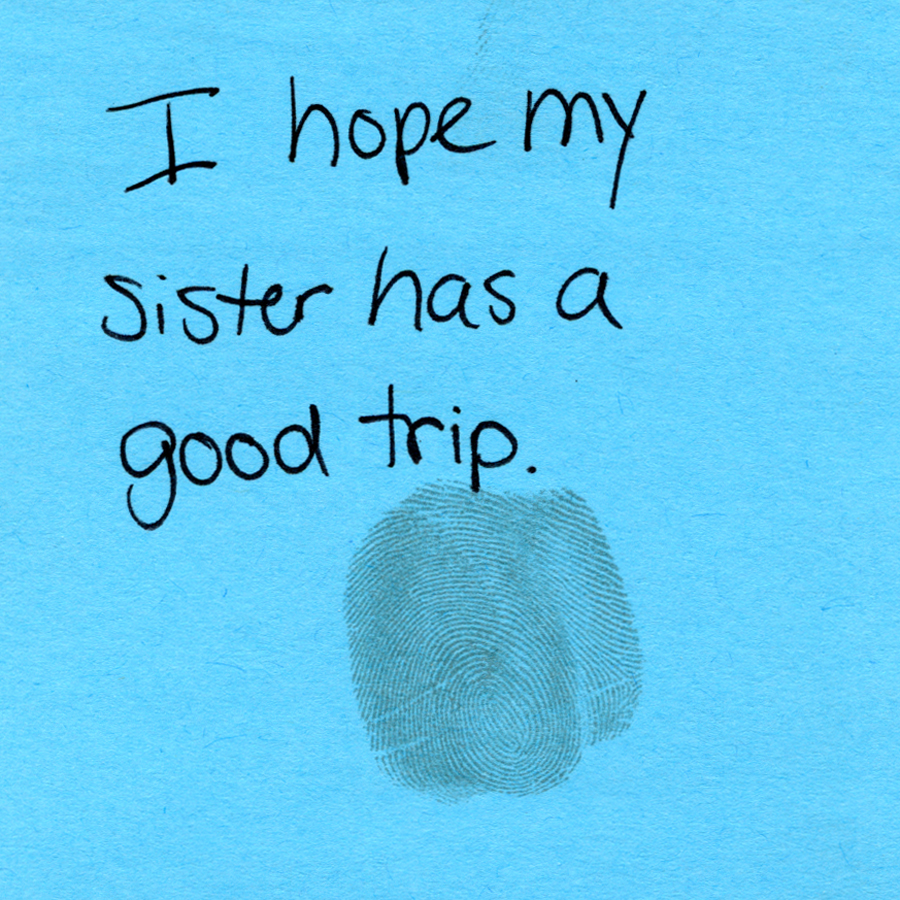 I hope my
sister has a
good trip.